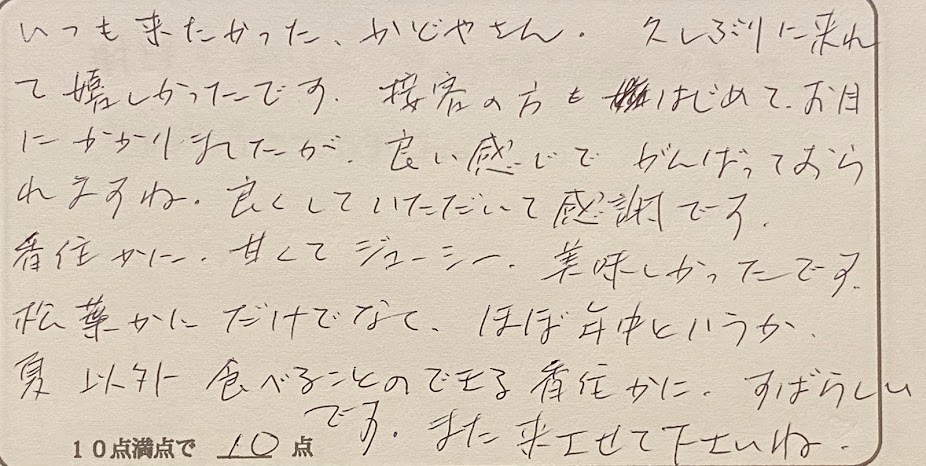 いつも来たかった、かじやさん。久しぶりに来れ
て嬉しかったです。接客の方もはじめて、お目
にかかりましたが、良い感じでがんばっておら
れますね。良くしていただいて感謝です。
香住かに、甘くてジューシー、美味しかったです。
松葉かにだけでなく、ほぼ年中というか、
夏以外食べることのできる香住かに、すばらしい
です。また来させて下さいね。
10点満点で 10 点